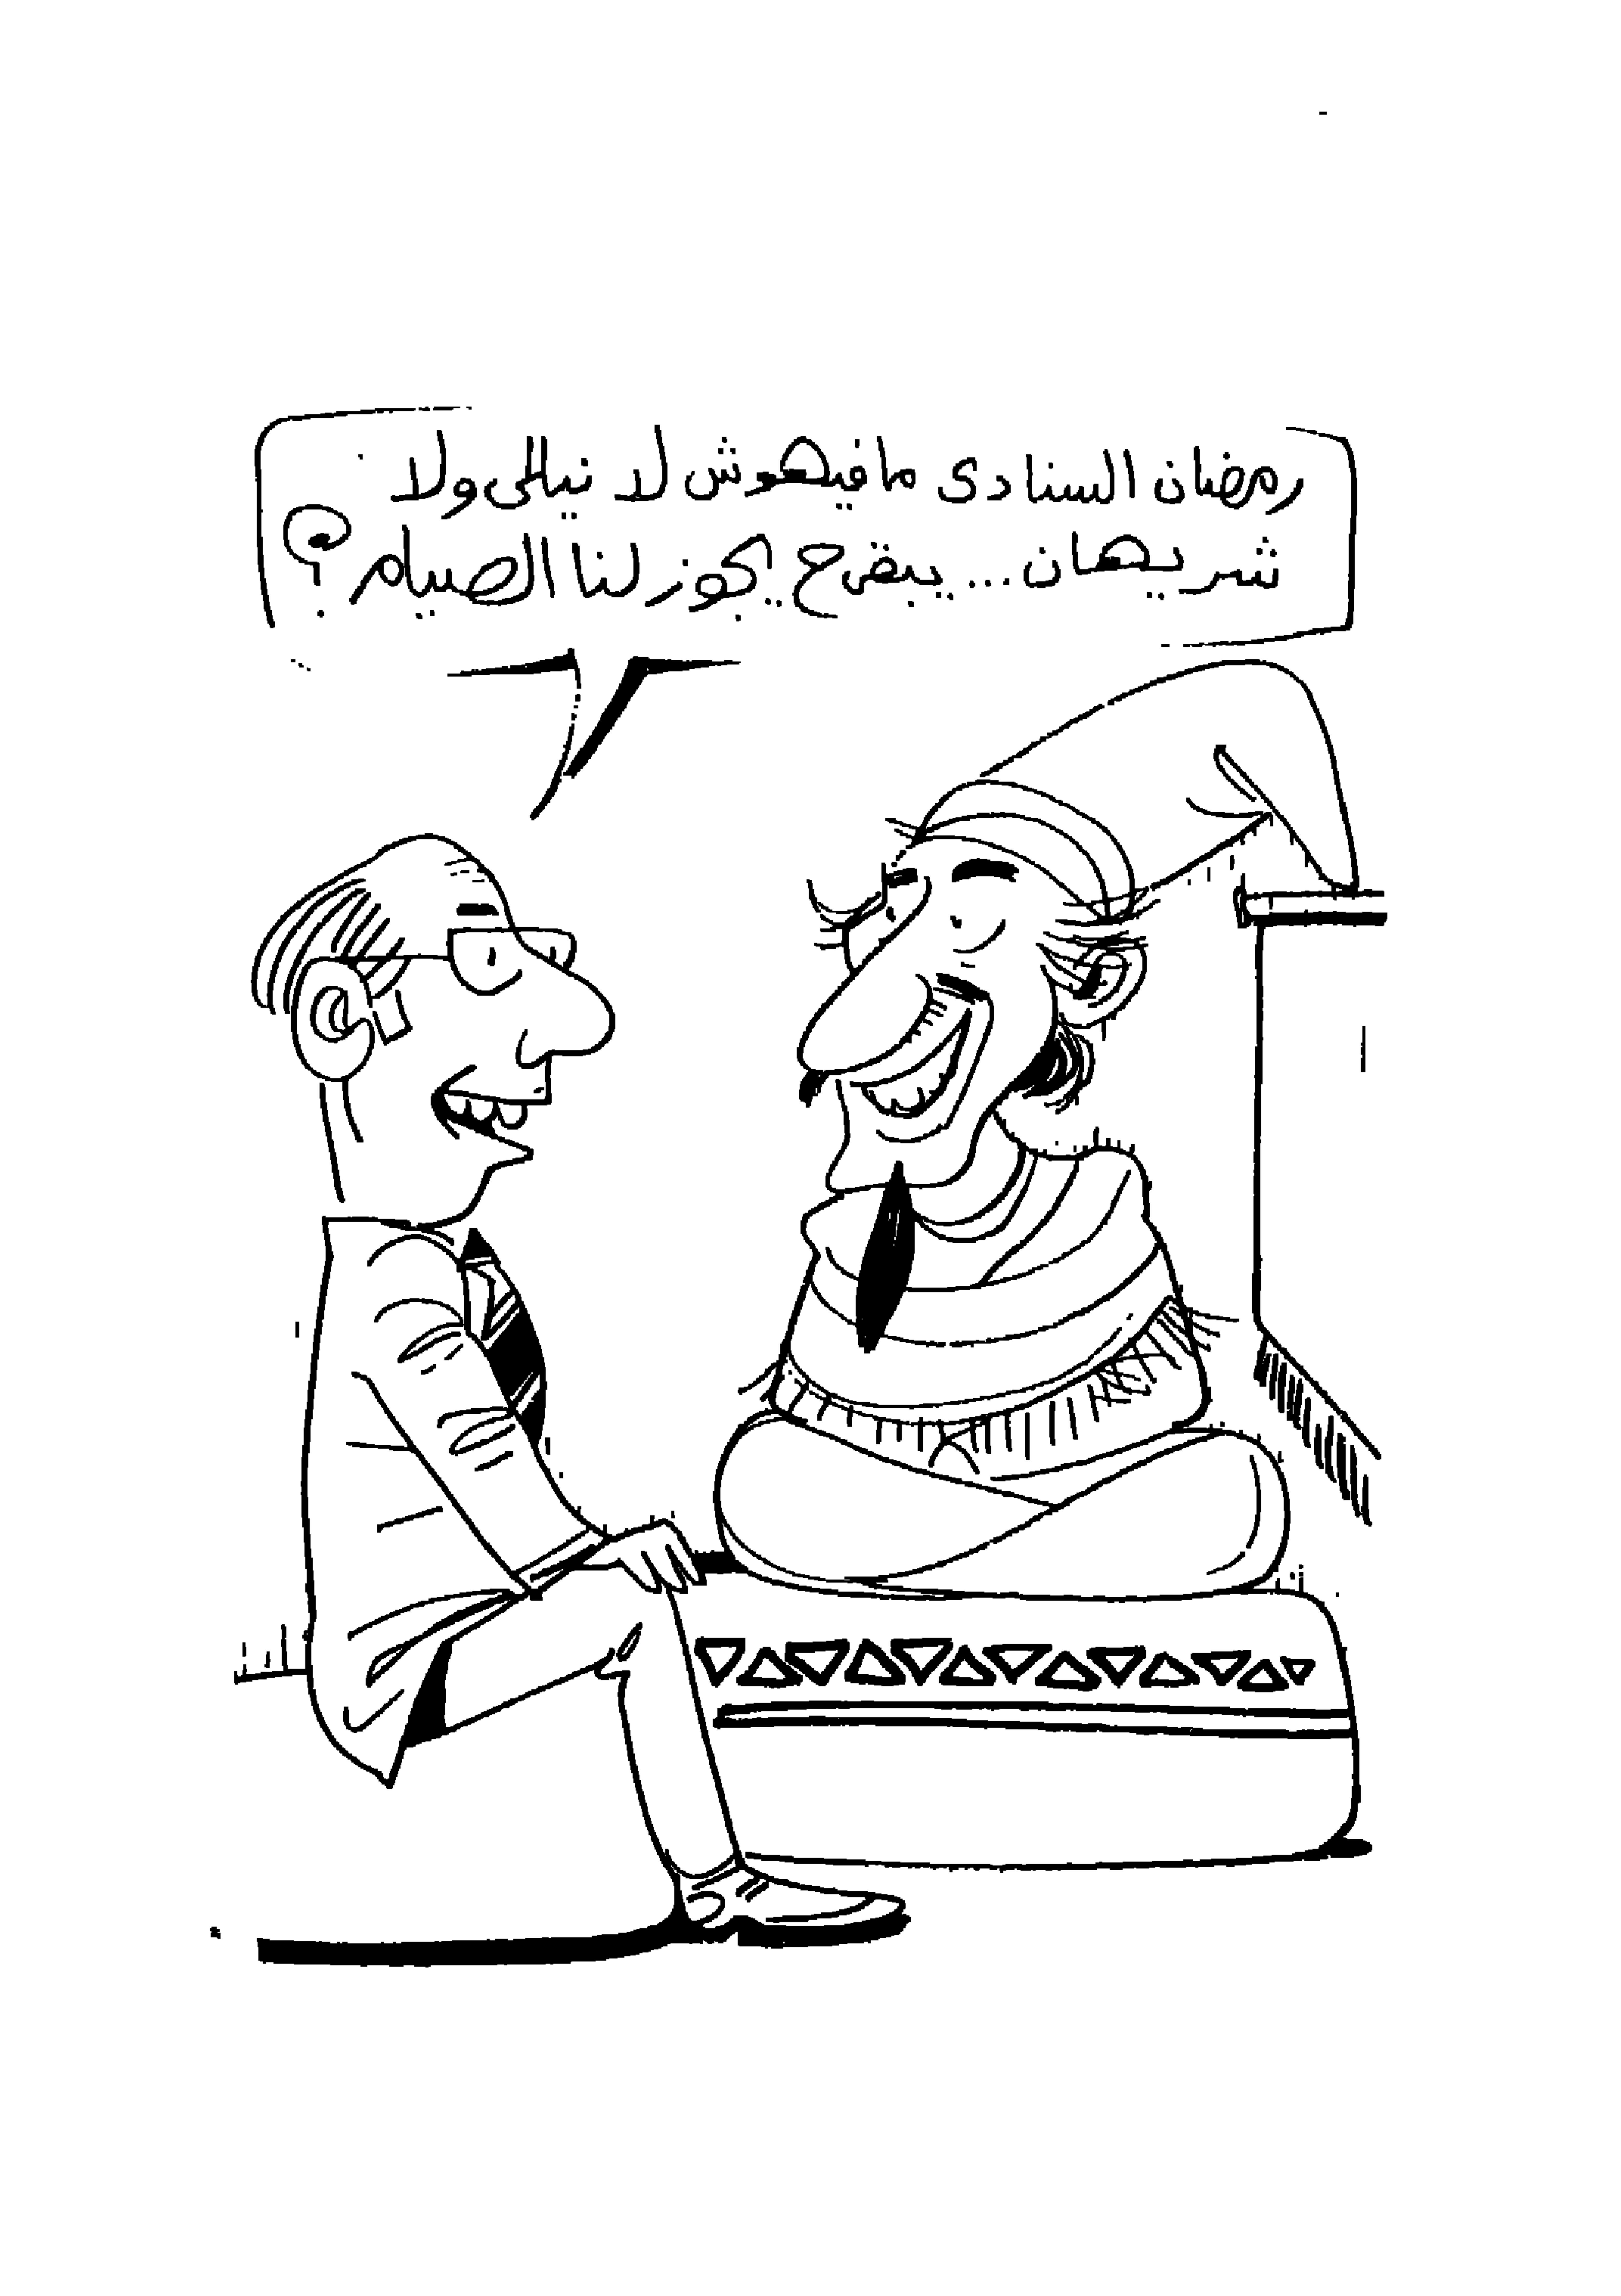 رمضان السنادى مافيهوش لا نيللى ولا
شريهان... يبقى ح يجوز لنا الصيام؟